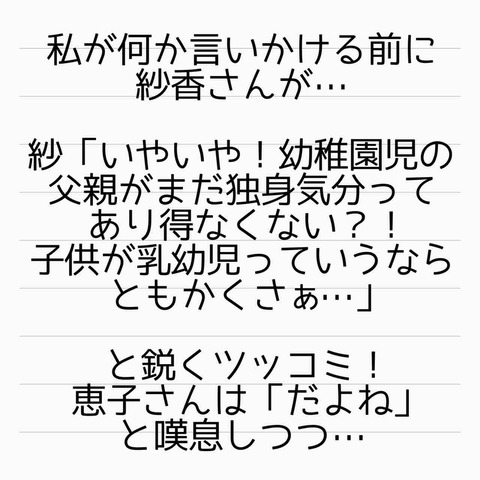 私が何か言いかける前に
紗香さんが…
紗「いやいや！幼稚園児の
父親がまだ独身気分って
あり得なくない？！
子供が乳幼児っていうなら
ともかくさぁ…」
と鋭くツッコミ！
恵子さんは「だよね」
と嘆息しつつ…